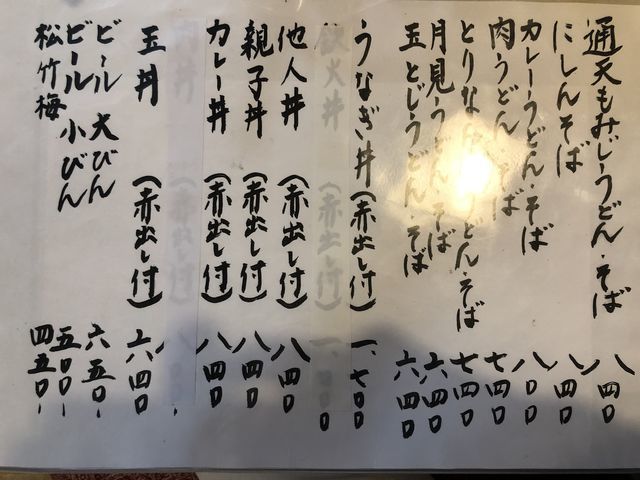 通天もみじうどん・そば 八四〇
にしんそば 八四〇
カレーうどん・そば 八〇〇
肉うどん・そば 七四〇
とりなんばうどん・そば 七四〇
月見うどん・そば 六四〇
玉とじうどん・そば 六四〇
うなぎ丼(赤出し付) 一、七〇〇
他人丼 (赤出し付) 八四〇
親子丼 (赤出し付) 八四〇
カレー丼 (赤出し付) 八四〇
玉丼 (赤出し付) 六四〇
ビール 大びん 六五〇、
ビール 小びん 五〇〇、
松竹梅 四五〇、